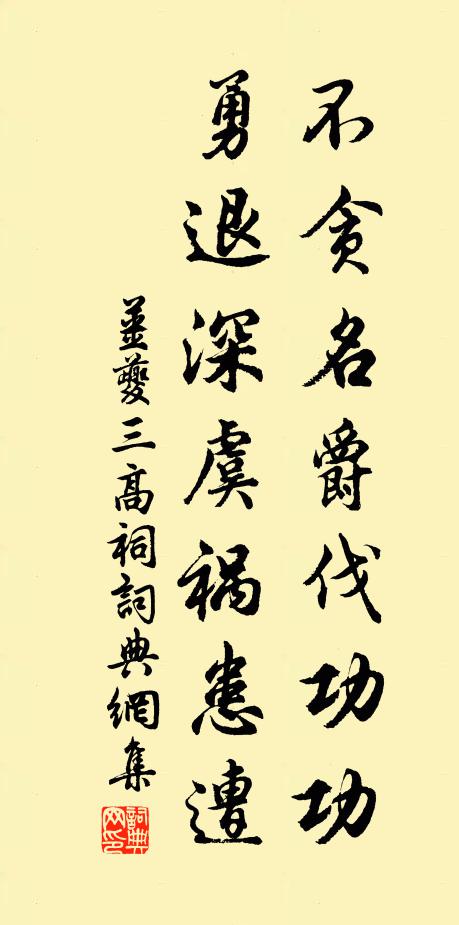 不贪名爵伐功功
勇退深虞祸患遭
姜夔三高祠詞典網集
詞典網印